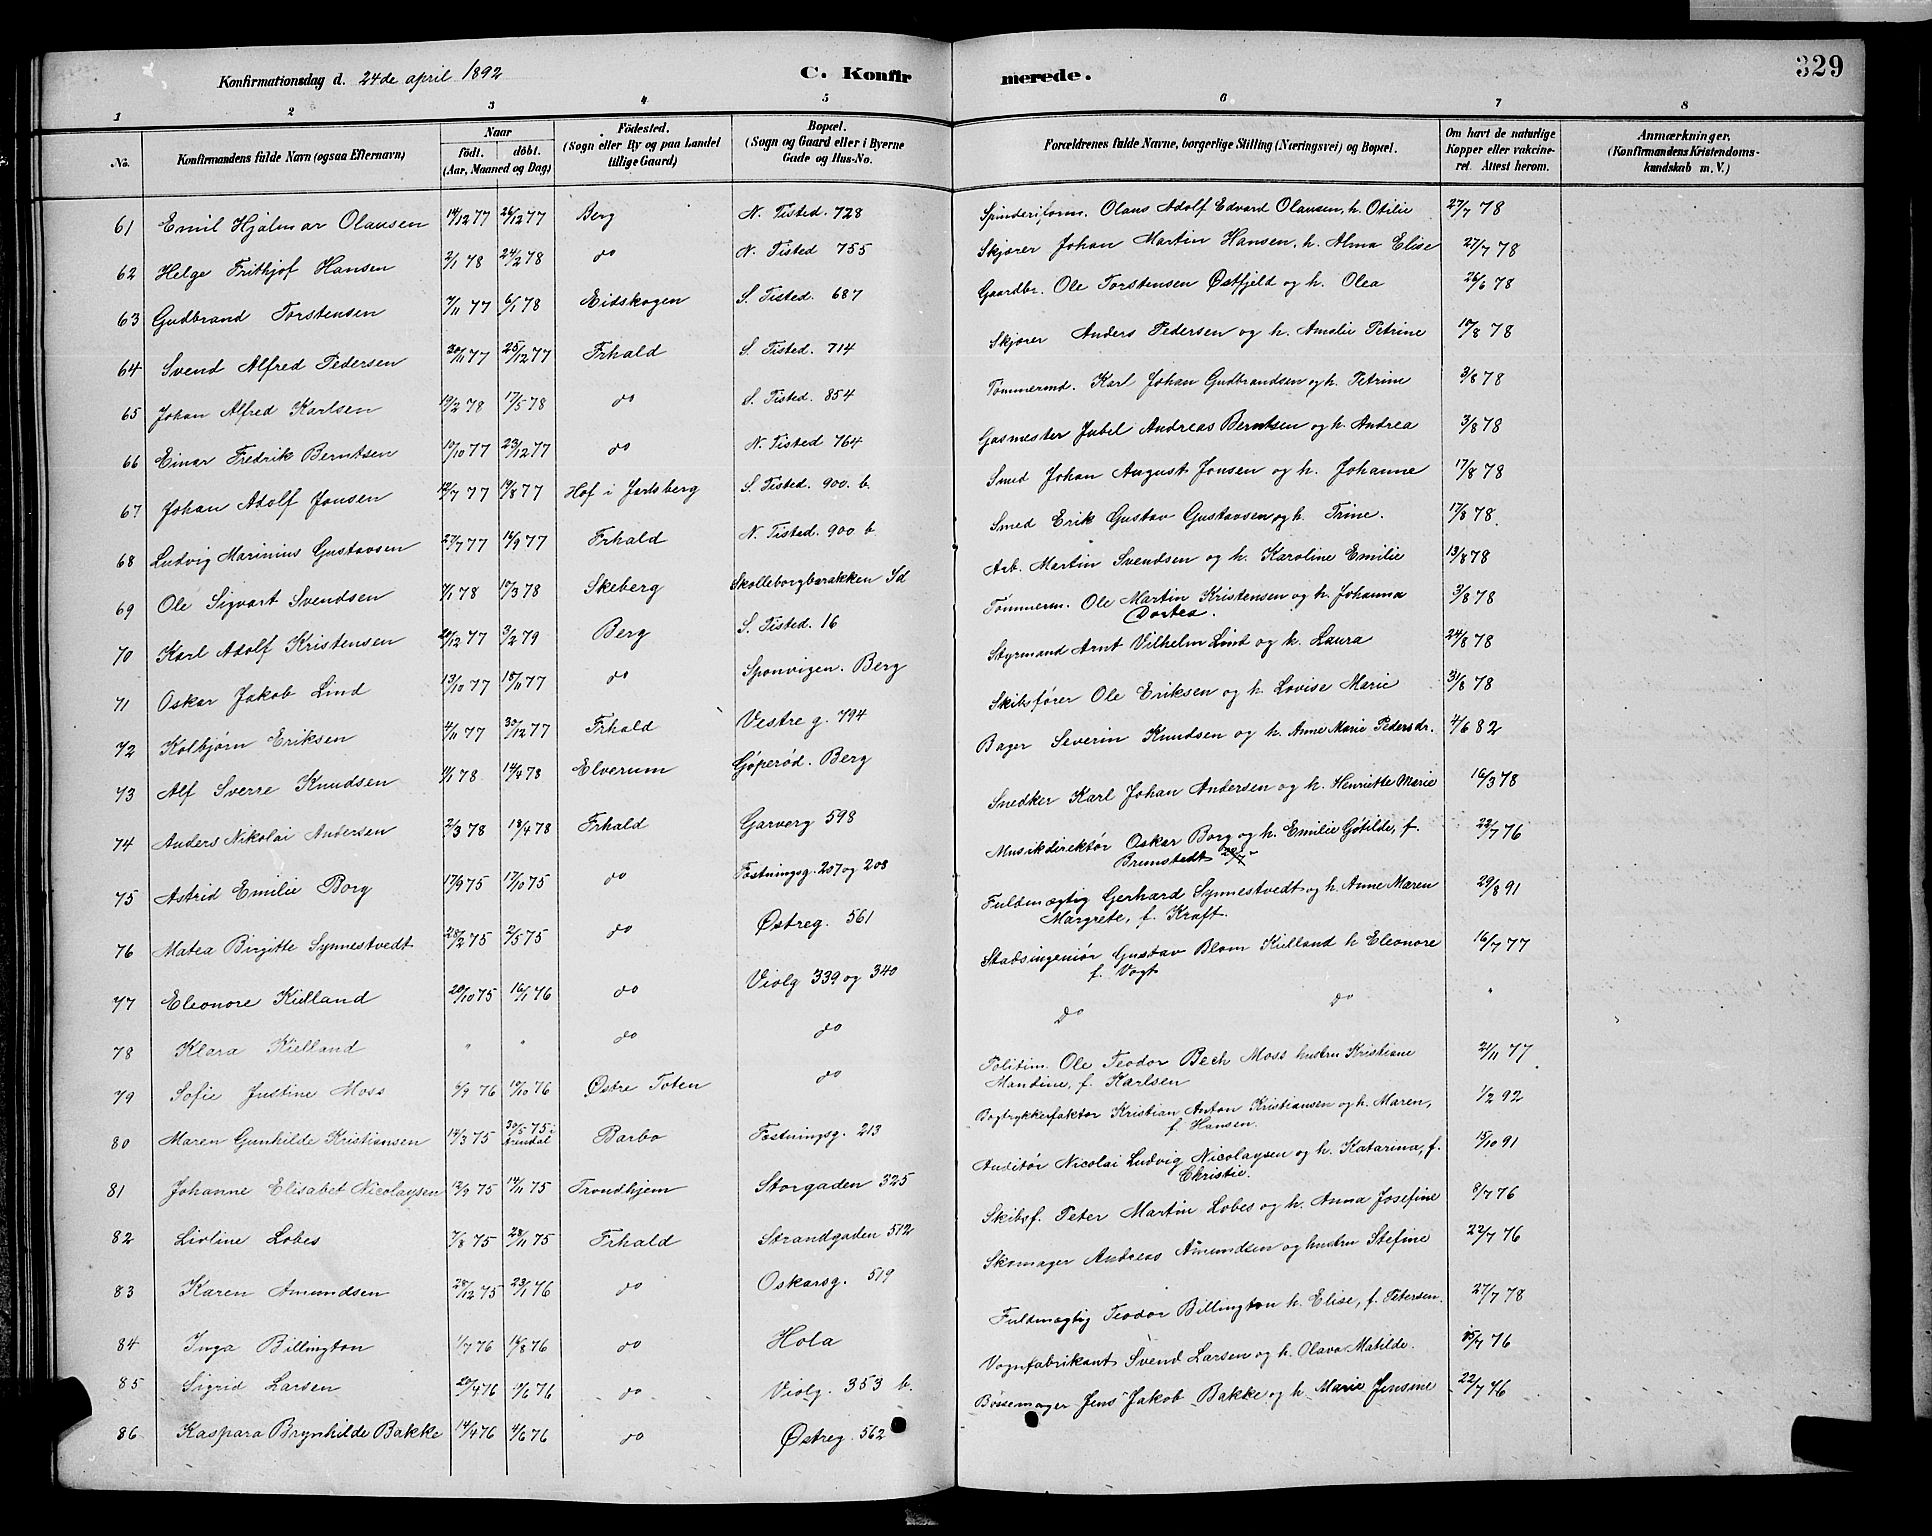 Konfirmationsdag d. 24de april 1892
C. Konfirmerede.
329
1 2 3 4 5 6 7 8
No.
Konfirmandens fulde Navn (ogsaa Efternavn)
Naar
födt. döbt.
(Aar, Maaned og Dag)
Födested.
(Sogn eller By og paa Landet
tillige Gaard)
Bopæl.
(Sogn og Gaard eller i Byerne
Gade og Hus-No.
Forældrenes fulde Navne, borgerlige Stilling (Næringsvei) og Bopæl.
Om havt de naturlige
Kopper eller vakcine-
ret. Attest herom.
Anmærkninger.
(Konfirmandens Kristendoms-
kundskab m. V.)
61 Emil Hjalmar Olausen 14/12 77 26/12 77 Berg N. Tisted. 728 Spinderiform. Olaus Adolf Edvard Olausen, h. Otilie 27/7 78
62 Helge Frithjof Hansen 2/1 78 24/2 78 do N. Tisted 755 Skjører Johan Martin Hansen, h. Alma Elise 27/7 78
63 Gudbrand Torstensen 7/11 77 6/1 78 Eidskogen S. Tisted. 687 Gaardbr. Ole Torstensen Østfjeld og h. Olea 26/6 78
64 Svend Alfred Pedersen 30/11 77 25/12 77 Frhald S. Tisted. 714 Skjører Anders Pedersen og h. Amalie Petrine 10/8 78
65 Johan Alfred Karlsen 19/2 78 17/5 78 do S. Tisted. 854 Tømmermd. Karl Johan Gudbrandsen og h. Petrine 3/8 78
66 Einar Fredrik Berntsen 10/10 77 23/12 77 do N. Tisted 764 Gasmester Jubel Andreas Berntsen og h. Andrea 3/8 78
67 Johan Adolf Jonsen 12/7 77 19/8 77 Hof i Jarlsberg S. Tisted. 900. b. Smed Johan August Jonsen og h. Johanne 17/8 78
68 Ludvig Marinius Gustavsen 27/7 77 16/9 77 Frhald N. Tisted. 900 b. Smed Erik Gustav Gustavsen og h. Trine. 17/8 78.
69 Ole Sigvart Svendsen 7/1 78 10/3 78 Skeberg Skolleborgbarakken Id Arb. Martin Svendsen og h. Karoline Emilie 13/8 78
70 Karl Adolf Kristensen 20/12 77 3/2 79 Berg S. Tisted. 16 Tømmerm. Ole Martin Kristensen og h. Johanna
Dortea. 3/8 78
71 Oskar Jakob Lind 13/10 77 18/11 77 do Sponvigen. Berg Styrmand Arnt Vilhelm Lind og h. Laura 24/8 78
72 Kolbjørn Eriksen 4/11 77 30/12 77 Frhald Vestre g. 794 Skibsfører Ole Eriksen og h. Lovise Marie 31/8 78
73 Alf Sverre Knudsen 11/1 78 14/4 78 Elverum Gøperød. Berg Bager Severin Knudsen og h. Anne Marie Pedersdr. 4/6 82
74 Anders Nikolai Andersen 2/3 78 18/4 78 Frhald Garverg 598 Snedker Karl Johan Andersen og h. Henriette Marie 16/3 78
75 Astrid Emilie Borg 17/9 75 17/10 75 do Fæstningsg. 207 og 208 Musikdirektør Oskar Borg og h. Emilie Gøtilde, f.
Brunstedt 22/7 76
76 Matea Birgitte Synnestvedt 28/2 75 2/5 75 do Østreg. 561 Fuldmægtig Gerhard Synnestvedt og h. Anne Maren
Margrete, f. Kraft. 29/8 91
77 Eleonore Kielland 20/10 75 16/1 76 do Violg 339 og 340 Stadsingeniør Gustav Blom Kielland h Eleonore
f. Vogt 16/7 77
78 Klara Kielland " " do do do do "
79 Sofie Justine Moss 6/9 76 19/10 76 Østre Toten do Politim. Ole Teodor Bech Moss hustru Kristiane
Mandine, f. Karlsen 21/11 77
80 Maren Gunhilde Kristiansen 14/3 75 30/5 75 i Arendal Barbo Fæstningsg. 213 Bogtrykkerfaktor Kristian Anton Kristiansen og h. Maren,
f. Hansen. 1/2 92
81 Johanne Elisabet Nicolaysen 12/9 75 14/11 75 Trondhjem Storgaden 325 Auditør Nicolai Ludvig Nicolaysen og h. Katarina, f.
Christie. 15/10 91
82 Livline Lobes 7/8 75 28/11 75 Frhald Strandgaden 512 Skibsf. Peter Martin Lobes og h. Anna Josefine 8/7 76
83 Karen Amundsen 28/12 75 23/1 76 do Oskarsg. 519 Skomager Andreas Amundsen og hustru Stefine 22/7 76
84 Inga Billington 1/7 76 16/8 76 do Hola Fuldmægtig Teodor Billington h. Elise, f. Petersen. 27/7 78
85 Sigrid Larsen 20/4 76 11/6 76 do Violg. 353 b. Vognfabrikant Svend Larsen og h. Olava Matilde. 15/7 76
86 Kaspara Brynhilde Bakke 14/4 76 4/6 76 do Østreg. 562 Bøssemager Jens Jakob Bakke og h. Marie Jensine 22/7 76